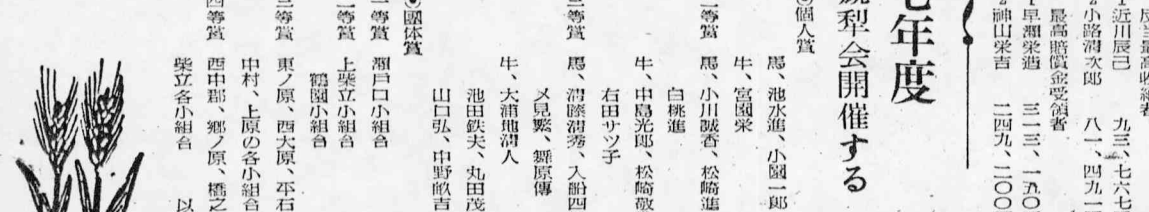 反当最高収納者
近川辰己 九三、七六七
小路清次郎 八一、四九一
最高賠償金受領者
早瀬栄造 三一三、一五〇
神山栄吉 二四九、二〇〇
七年度
競犁会開催する
◎個人賞
馬、池水進、小園一郎
牛、宮園栄
一等賞 馬、小川誠香、松崎進
白桃進
牛、中島光郎、松崎敬
右田サツ子
三等賞 馬、清藤清秀、入船四
〆見繁、舞原傳
牛、大浦地清人
池田鉄夫、丸田茂
山口弘、中野畩吉
◎團体賞
一等賞 瀬戸口小組合
二等賞 上柴立小組合
鶴園小組合
三等賞 東ノ原、西大原、平石
中村、上原の各小組合
四等賞 西中郡、郷ノ原、橋之
柴立各小組合 以